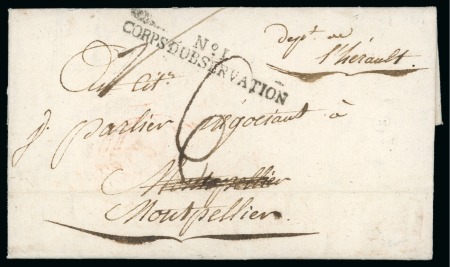 No. 1
CORPS D'OBSERVATION
dept. de
l'hérault.
Au cit.
J. parlier négociant à
6
Montpellier
Montpellier.